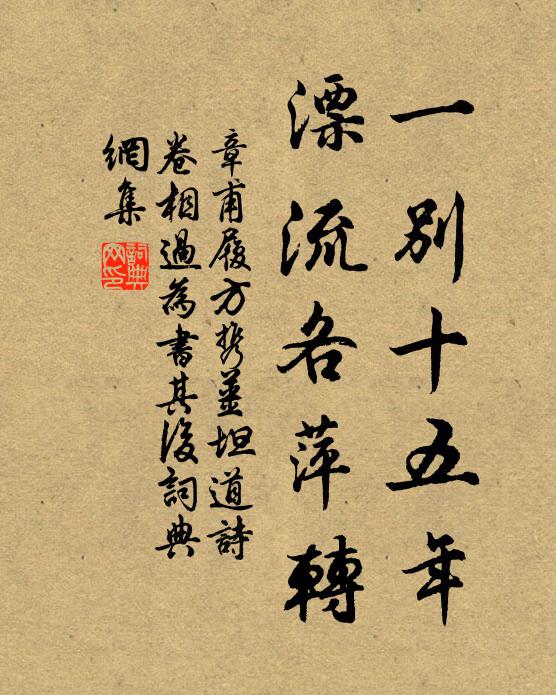 一别十五年
漂流各萍轉
章甫履方携姜坦道詩
卷相過為書其後詞典
網集
詞典
网印